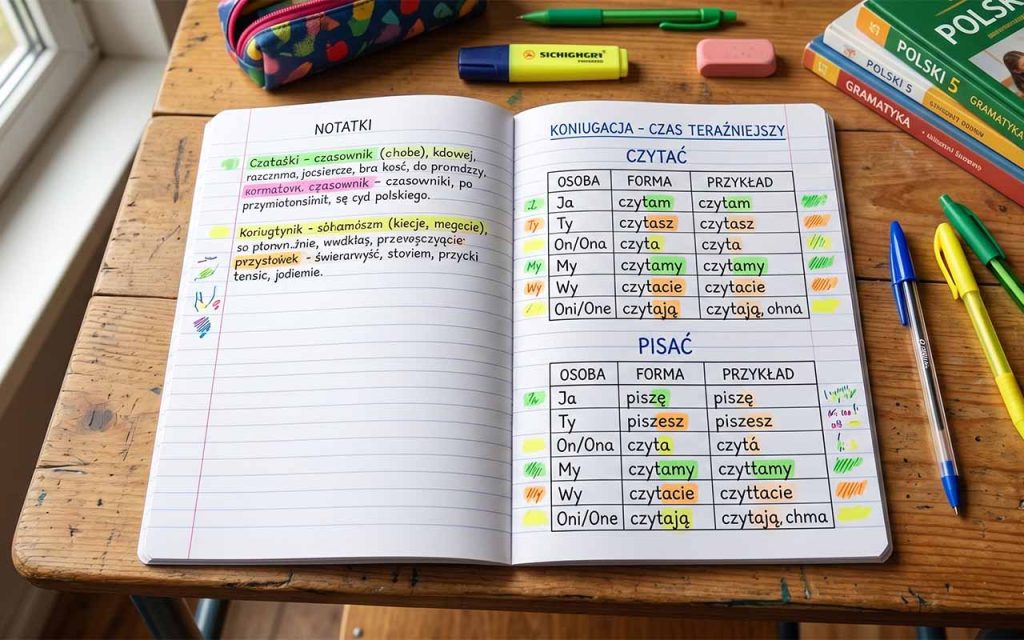 NOTATKI
Czataśki – czasownik (chobe), kdowej,
razcznma, jocsiercze, bra kość, do promdzzy,
czasownik – czasowniki, po
przymiotonslinit, sę cyd polskiego.
Koriugtynik – sóhamośzm (kiecje, megęcie),
so
przystowek – świerarwyść, stoviem, przycki
tensic, jodiemie.
KONIUGACJA – CZAS TERAŹNIEJSZY
CZYTAĆ
OSOBA FORMA PRZYKŁAD
Ja czytam czytam
Ty Ty czytasz czytasz
On/Ona czyta czyta
My My czytamy czytamy
Wy Wy czytacie czytacie
Oni/One czytają czytają, ohna
PISAĆ
OSOBA FORMA PRZYKŁAD
Ja piszę piszę
Ty piszesz piszesz
On/Ona czyta czytá
My czytamy czyttamy
Wy czytacie czyttacie
Oni/One czytają czytają, chma
SICHIGHGRI
POLSKI
POLSKI 5
GRAMATYKA
POLSKI 5
GRAMATYKA